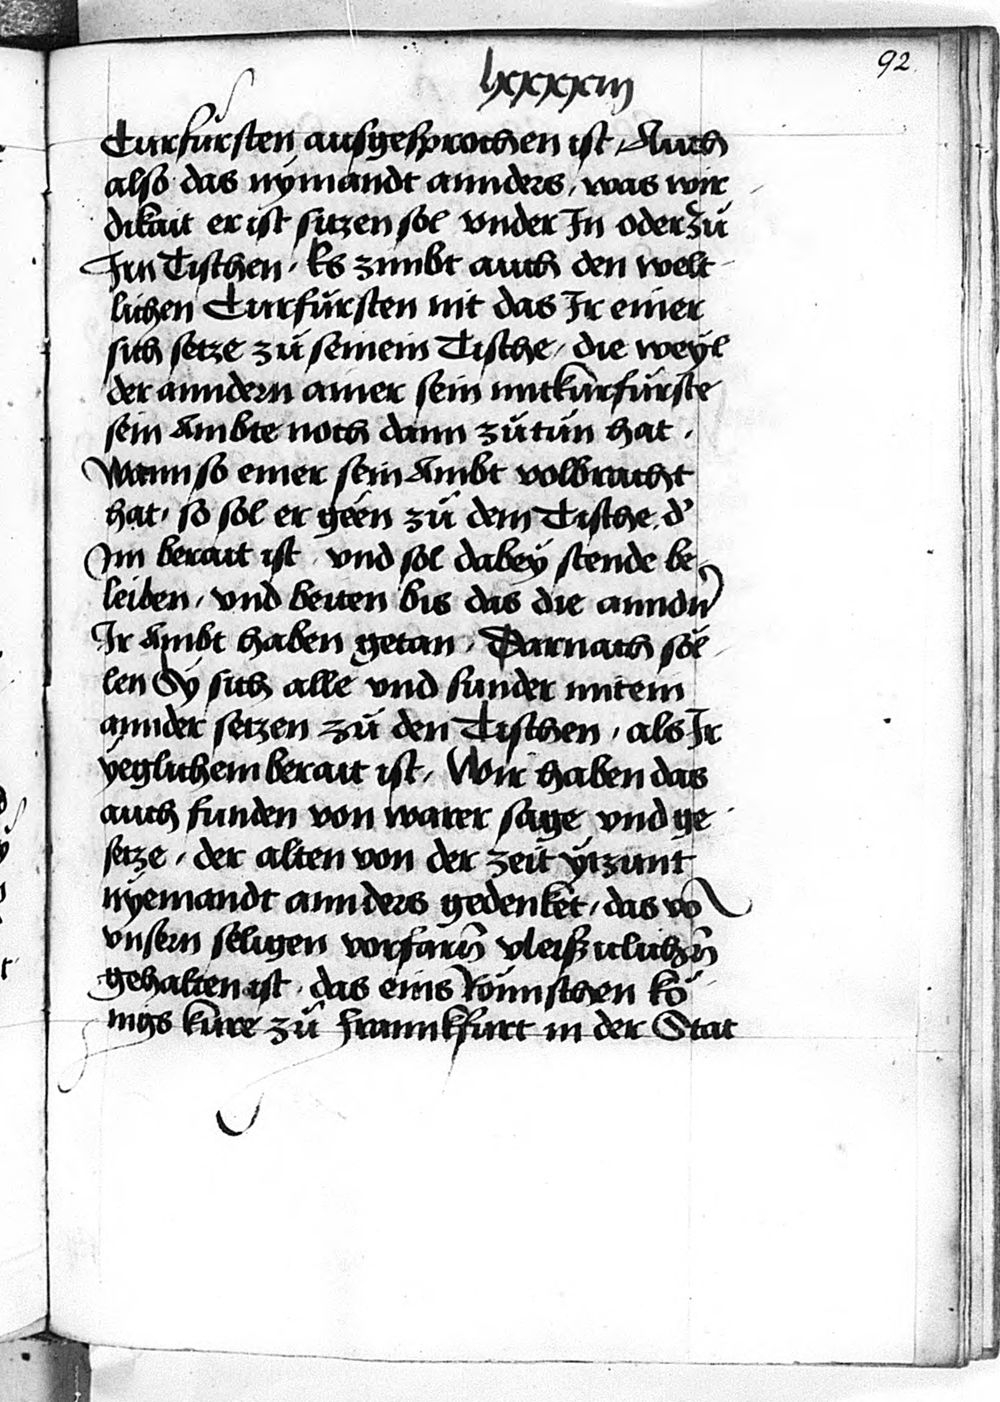 92
lxxxxiii
Curfürsten ausgesprochen ist, Auch
also das nymandt annders, was wir
dikait er ist sitzen sol vnder In oder zu
Irn Tischen, Es zimbt auch den welt
lichen Curfürsten nit das Ir einer
sich setze zu seinem Tische, die weyl
der anndern ainer sein mitkurfürste
sein Ambte noch dann zutun hat.
Wann so einer sein Ambt volbracht
hat, so sol er geen zu dem Tische, d'
Im berait ist, vnd sol dabey stende be
leiben, vnd beiten bis das die anndn
Ir Ambt haben getan, Darnach söl
len Sy sich alle vnd sunder mitein
annder setzen zu den Tischen, als Ir
yeglichem berait ist, Wir haben das
auch funden von warer sage vnd ge
setze, der alten von der zeit ytzunt
nyemandt annders gedenket, das vo
vnsern seligen vorfarn vleissiclichn
gehalten ist, das eins Römischen kö
nigs kure zu Frannkfurt in der Stat